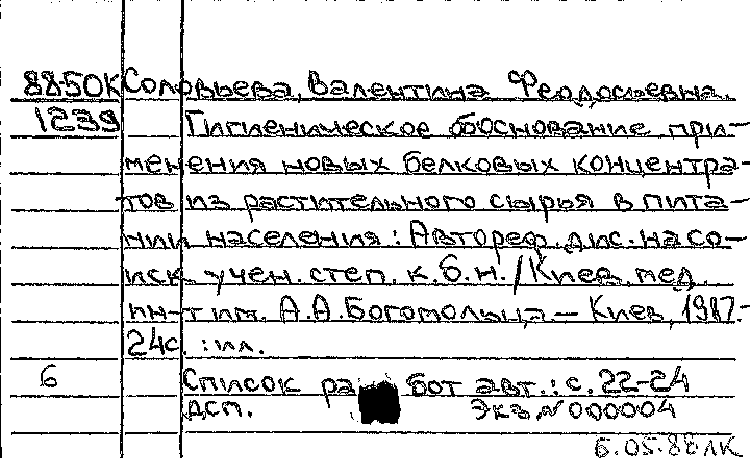 8850К Соловьева, Валентина Феодосьевна.
1239 Гигиеническое обоснование при-
менения новых белковых концентра-
тов из растительного сырья в пита-
нии населения: Автореф. дис. на со-
иск учен. степ. к. б. н. / Киев. мед.
ин-т им. А. А. Богомольца. — Киев, 1987.-
24с. : ил.
6 Список ра бот авт.: с. 22-24
ДСП. Экз. N 000004
6.05.88 ЛК